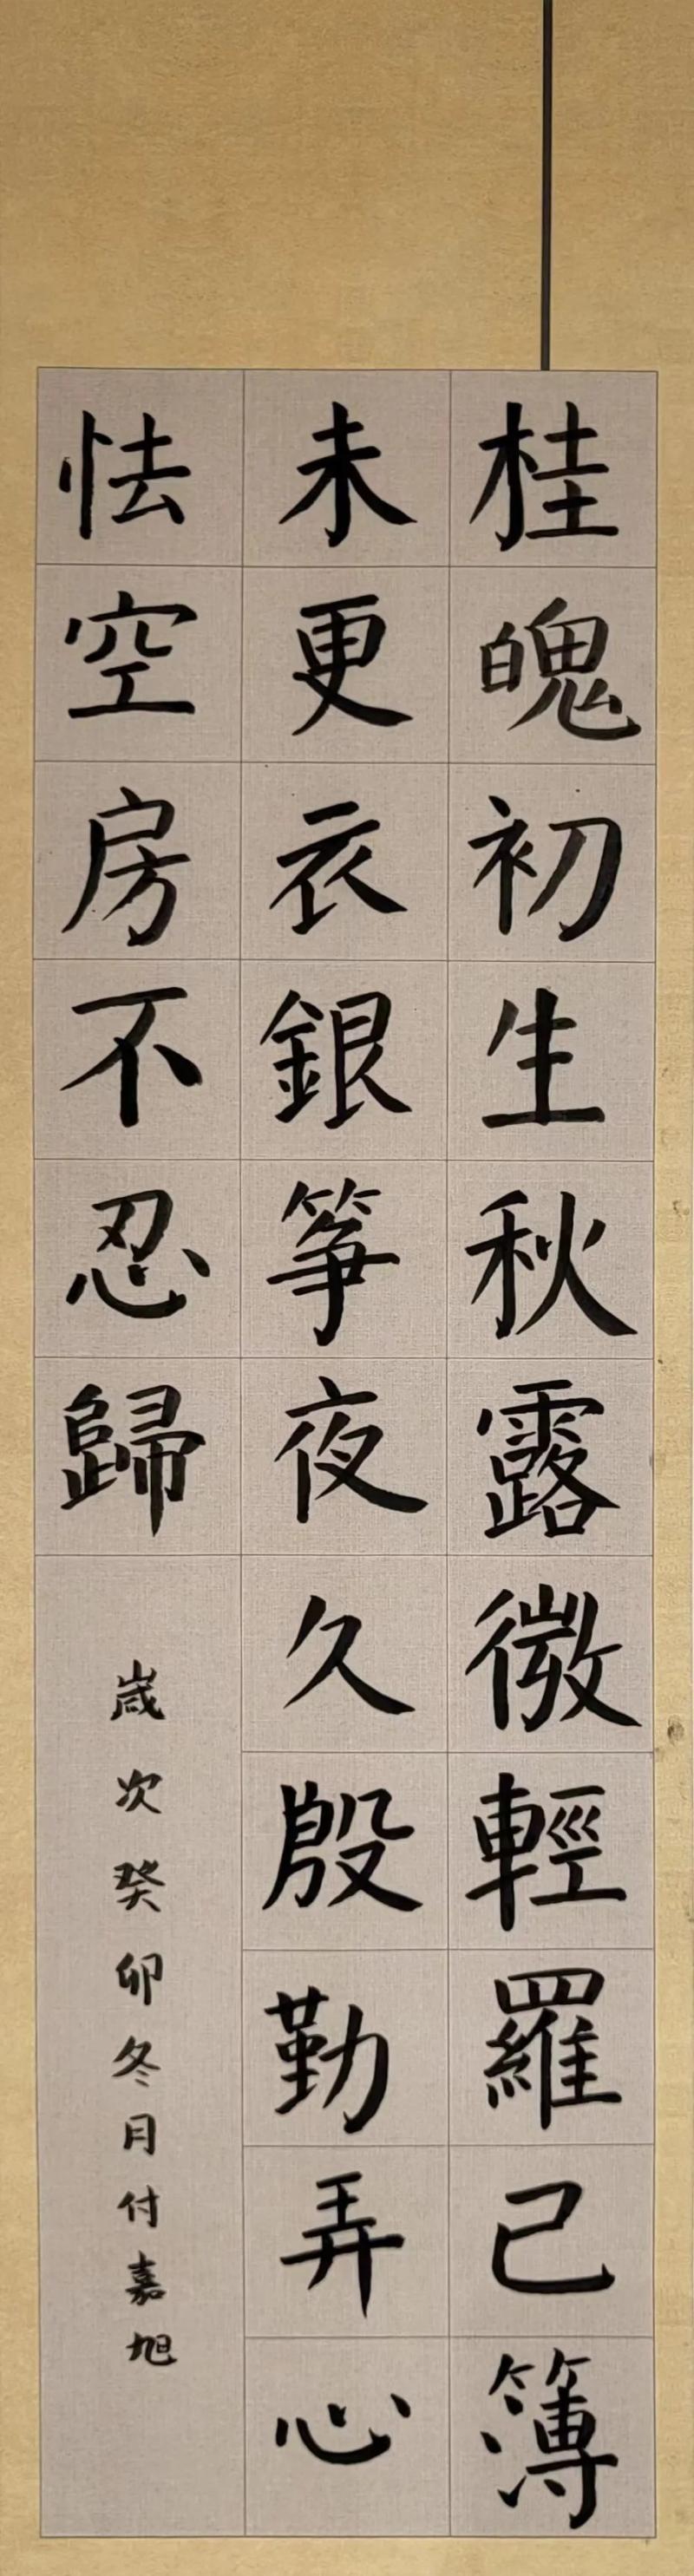 桂魄初生秋露微輕羅已簿
未更衣銀箏夜久殷勤弄心
怯空房不忍歸
歲次癸卯冬月付嘉旭